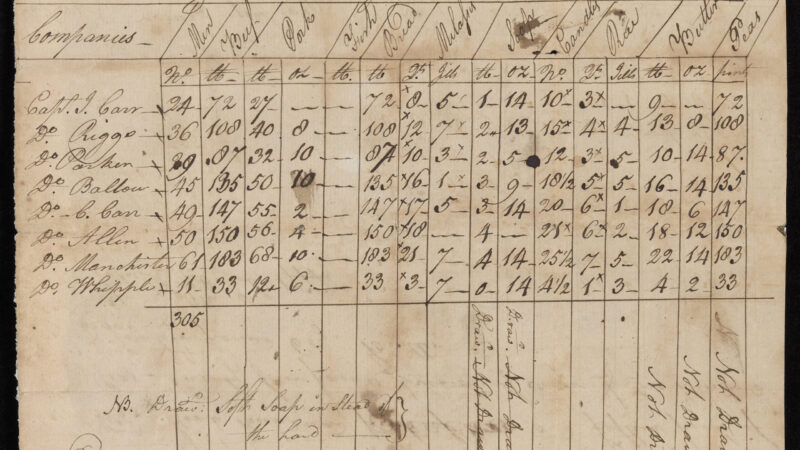 Companies — Men Beef Pork Fish Bread Molasses Soap Candles Rice Butter Peas
No. lb lb oz lb. lb Qts Jills lb oz No. Qts Jills lb oz pint
Capt. J. Carr 24 72 27 — — 72 8 5 1 14 10 3 — 9 — 72
Do Riggs 36 108 40 8 — 108 12 7 2 13 15 4 4 13 8 108
Do Parker 87 32 10 — 87 10 3 2 5 12 3 5 10 14 87.
Do Ballow 45 135 50 10 — 135 16 1 3 9 18½ 5 5 16 14 135
Do C. Carr 49 147 55 2 — 147 17 5 3 14 20 6 1 18 6 147
Do Allen 50 150 56 4 — 150 18 — 4 — 21 6 2 18 12 150
Do Manchester 61 183 68 10 — 183 21 7 4 14 25½ 7 5 22 14 183
Do Whipple 11 33 12 6 — 33 3 7 0 14 4½ 1 3 4 2 33
305
Draw.
Not
Draw. Not
Not
Not Draw
Not Draw
NB. Draw. Soft Soap in Stead of
the hard